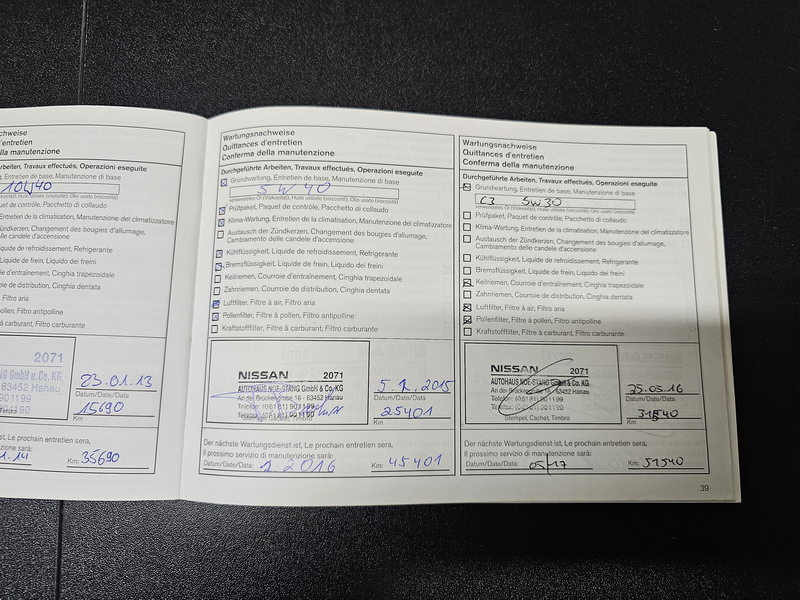 chweise
d'entretien
della manutenzione
Arbeiten, Travaux effectués, Operazioni eseguite
g, Entretien de base, Manutenzione di base
10W40
(Viskosität), Huile utilisée (viscosité), Olio usato (viscosità)
quet de contrôle, Pacchetto di collaudo
g, Entretien de la climatisation, Manutenzione del climatizzatore
ündkerzen, Changement des bougies d'allumage,
delle candele d'accensione
Liquide de refroidissement, Refrigerante
Liquide de frein, Liquido dei freini
ie d'entraînement, Cinghia trapezoidale
ie de distribution, Cinghia dentata
à air, Filtro aria
pollen, Filtro antipolline
à carburant, Filtro carburante
2071
NG GmbH u. Co. KG
63452 Hanau
Timbro
23.01.13
Datum/Date/Data
15690
Km
st, Le prochain entretien sera,
zione sarà:
1.14
Km: 35690
Wartungsnachweise
Quittances d'entretien
Conferma della manutenzione
Durchgeführte Arbeiten, Travaux effectués, Operazioni eseguite
Grundwartung, Entretien de base, Manutenzione di base
5W40
verwendetes Öl (Viskosität), Huile utilisée (viscosité), Olio usato (viscosità)
Prüfpaket, Paquet de contrôle, Pacchetto di collaudo
Klima-Wartung, Entretien de la climatisation, Manutenzione del climatizzatore
Austausch der Zündkerzen, Changement des bougies d'allumage,
Cambiamento delle candele d'accensione
Kühlflüssigkeit, Liquide de refroidissement, Refrigerante
Bremsflüssigkeit, Liquide de frein, Liquido dei freini
Keilriemen, Courroie d'entraînement, Cinghia trapezoidale
Zahnriemen, Courroie de distribution, Cinghia dentata
Luftfilter, Filtre à air, Filtro aria
Pollenfilter, Filtre à pollen, Filtro antipolline
Kraftstofffilter, Filtre à carburant, Filtro carburante
NISSAN 2071
AUTOHAUS NOE-STANG GmbH & Co. KG
An der Brückenstraße 16 · 63452 Hanau
Telefon: (06181) 901199
Telefax: (06181) 901190
Stempel, Cachet, Timbro
Datum/Date/Data
25401
Km
Der nächste Wartungsdienst ist, Le prochain entretien sera,
Il prossimo servizio di manutenzione sarà:
Datum/Date/Data: 1.2016 Km: 45401
Wartungsnachweise
Quittances d'entretien
Conferma della manutenzione
Durchgeführte Arbeiten, Travaux effectués, Operazioni eseguite
Grundwartung, Entretien de base, Manutenzione di base
C3 5W30
verwendetes Öl (Viskosität), Huile utilisée (viscosité), Olio usato (viscosità)
Prüfpaket, Paquet de contrôle, Pacchetto di collaudo
Klima-Wartung, Entretien de la climatisation, Manutenzione del climatizzatore
Austausch der Zündkerzen, Changement des bougies d'allumage,
Cambiamento delle candele d'accensione
Kühlflüssigkeit, Liquide de refroidissement, Refrigerante
Bremsflüssigkeit, Liquide de frein, Liquido dei freini
Keilriemen, Courroie d'entraînement, Cinghia trapezoidale
Zahnriemen, Courroie de distribution, Cinghia dentata
Luftfilter, Filtre à air, Filtro aria
Pollenfilter, Filtre à pollen, Filtro antipolline
Kraftstofffilter, Filtre à carburant, Filtro carburante
NISSAN 2071
AUTOHAUS NOE-STANG GmbH & Co. KG
An der Brückenstraße 16 · 63452 Hanau
Telefon: (06181) 901199
Telefax: (06181) 901190
Stempel, Cachet, Timbro
25.05.16
Datum/Date/Data
31540
Km
Der nächste Wartungsdienst ist, Le prochain entretien sera,
Il prossimo servizio di manutenzione sarà:
Datum/Date/Data: 05/17 Km: 51540
39